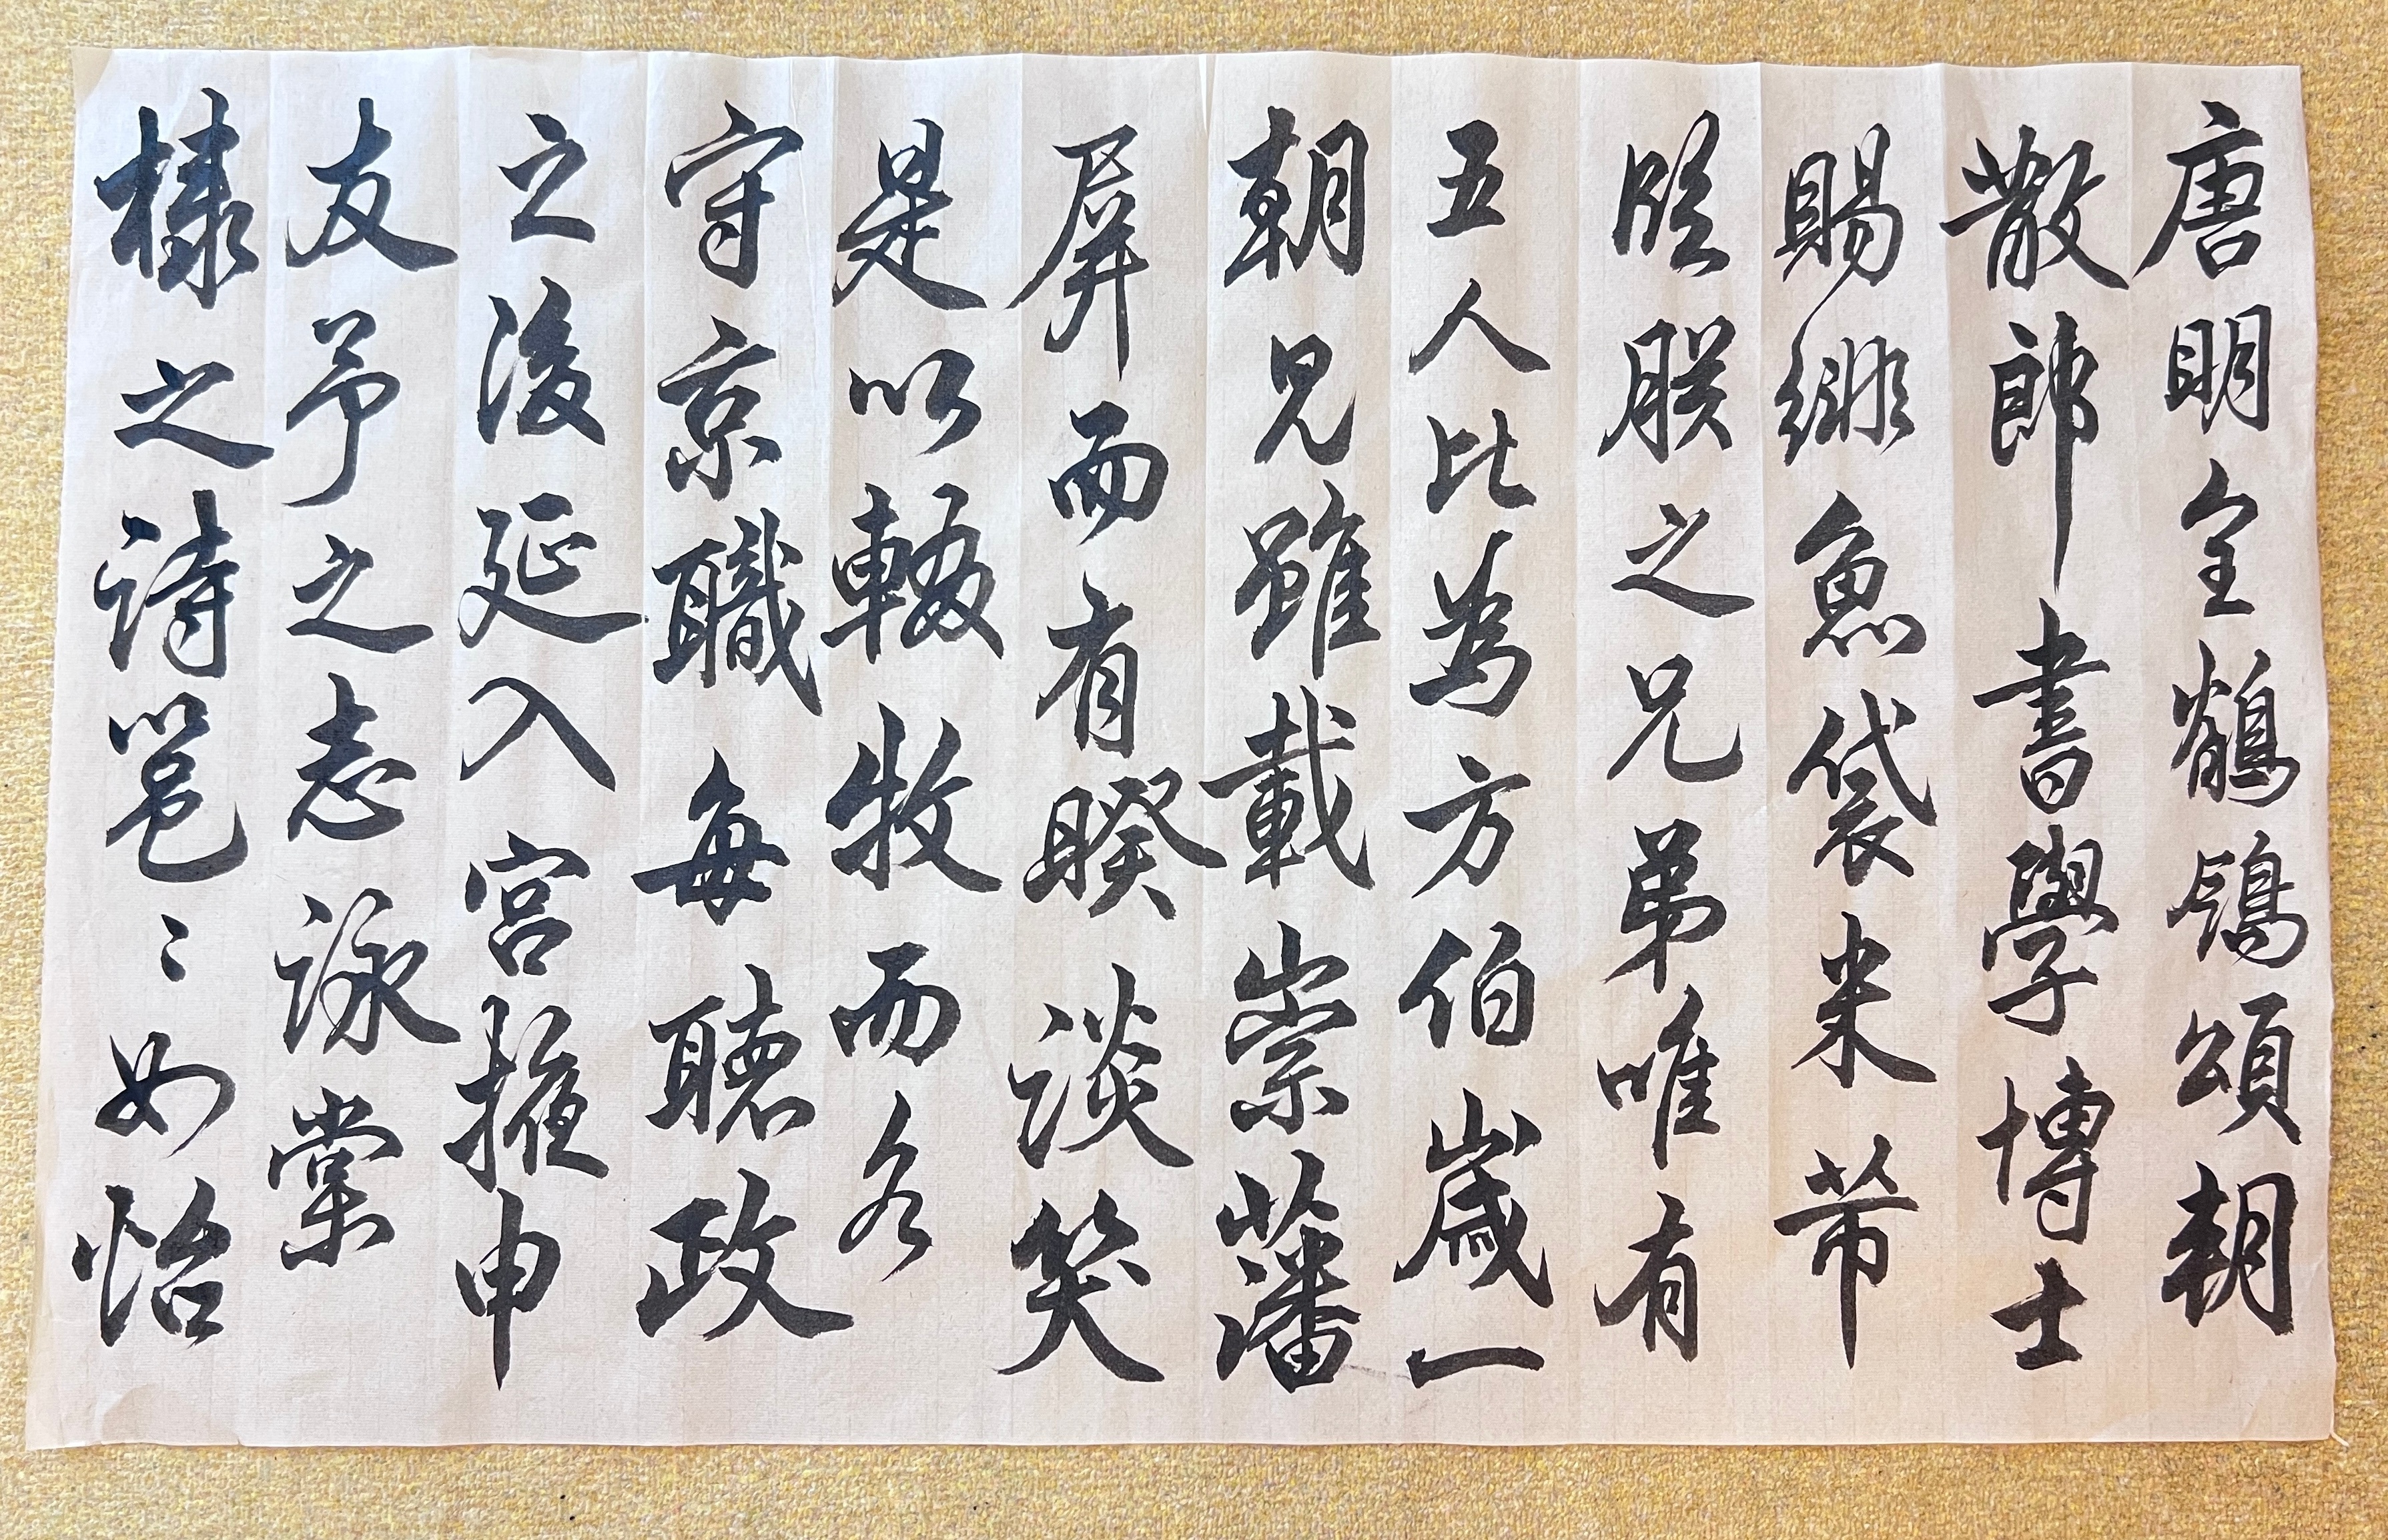 唐明皇鶺鴒頌朝
散郎書學博士
賜緋魚袋米芾
臨朕之兄弟唯有
五人比為方伯歲一
朝見雖載崇藩
屏而有睽談笑
是以輟牧而各
守京職每聽政
之後延入宮掖申
友于之志詠棠
棣之詩邕〻如怡